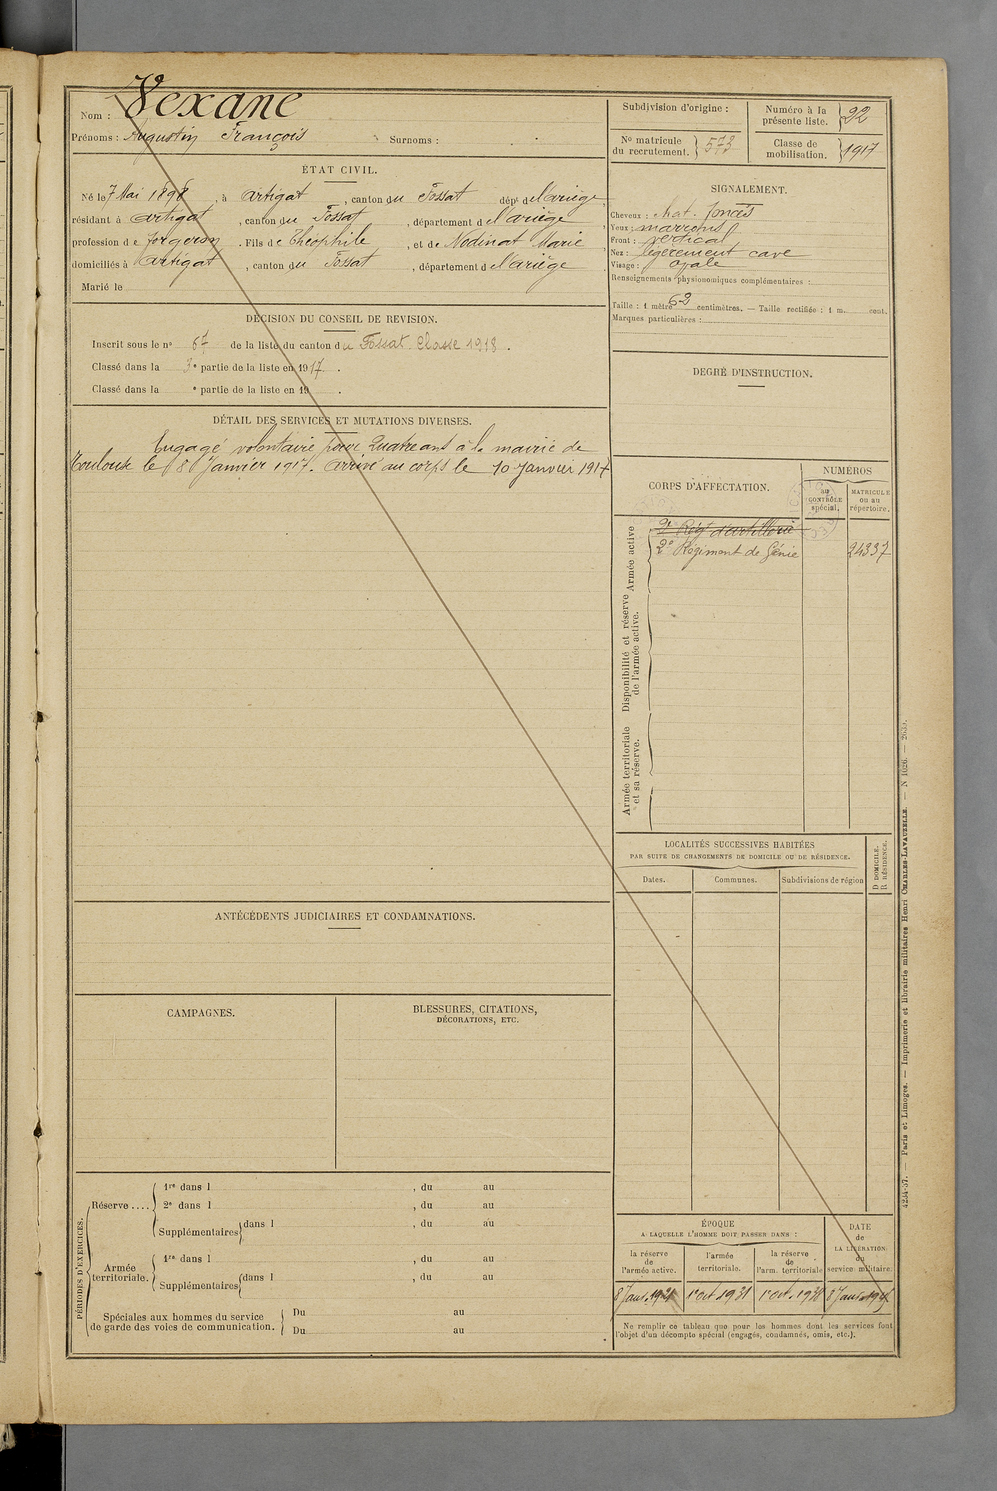 Nom : Vexane
Prénoms : Augustin François Surnoms :
ÉTAT CIVIL.
Né le 7 Mai 1898, à Artigat, canton du Fossat, dépt de l'Ariège,
résidant à Artigat, canton du Fossat, département de l'Ariège,
profession de forgeron. Fils de Théophile, et de Nodinat Marie,
domiciliés à Artigat, canton du Fossat, département de l'Ariège
Marié le
DÉCISION DU CONSEIL DE REVISION.
Inscrit sous le n° 67 de la liste du canton du Fossat. Classe 1918.
Classé dans la 3e partie de la liste en 1917.
Classé dans la e partie de la liste en 19 .
DÉTAIL DES SERVICES ET MUTATIONS DIVERSES.
Engagé volontaire pour Quatre ans à la mairie de
Toulouse le 8 Janvier 1917. Arrivé au corps le 10 Janvier 1917
ANTÉCÉDENTS JUDICIAIRES ET CONDAMNATIONS.
CAMPAGNES.
BLESSURES, CITATIONS,
DÉCORATIONS, ETC.
PÉRIODES D'EXERCICES.
Réserve ....
1re dans l , du au
2e dans l , du au
Supplémentaires dans l , du au
Armée
territoriale.
1re dans l , du au
Supplémentaires dans l , du au
Spéciales aux hommes du service
de garde des voies de communication.
Du au
Du au
Subdivision d'origine :
Numéro à la
présente liste. 22
No matricule
du recrutement. 573
Classe de
mobilisation. 1917
SIGNALEMENT.
Cheveux : chat. foncés
Yeux : marrons
Front : vertical
Nez : légèrement cave
Visage : ovale
Renseignements physionomiques complémentaires :
Taille : 1 mètre 62 centimètres. — Taille rectifiée : 1 m. cent.
Marques particulières :
DEGRÉ D'INSTRUCTION.
CORPS D'AFFECTATION.
NUMÉROS
au
CONTRÔLE
spécial.
MATRICULE
ou au
répertoire.
Armée active
2e Régt d'artillerie
2e Régiment de Génie 24337
Disponibilité et réserve
de l'armée active.
Armée territoriale
et sa réserve.
LOCALITÉS SUCCESSIVES HABITÉES
PAR SUITE DE CHANGEMENTS DE DOMICILE OU DE RÉSIDENCE.
Dates. Communes. Subdivisions de région
D DOMICILE.
R RÉSIDENCE.
ÉPOQUE
A LAQUELLE L'HOMME DOIT PASSER DANS :
la réserve
de
l'armée active.
l'armée
territoriale.
la réserve
de
l'arm. territoriale
DATE
de
LA LIBÉRATION
du
service militaire.
8 Janv. 1921 1er Oct. 1931 1er Oct. 1938 8 Janv.
Ne remplir ce tableau que pour les hommes dont les services font
l'objet d'un décompte spécial (engagés, condamnés, omis, etc.).
4234-37. — Paris et Limoges. — Imprimerie et librairie militaires Henri CHARLES-LAVAUZELLE. — N 1026. — 2633.